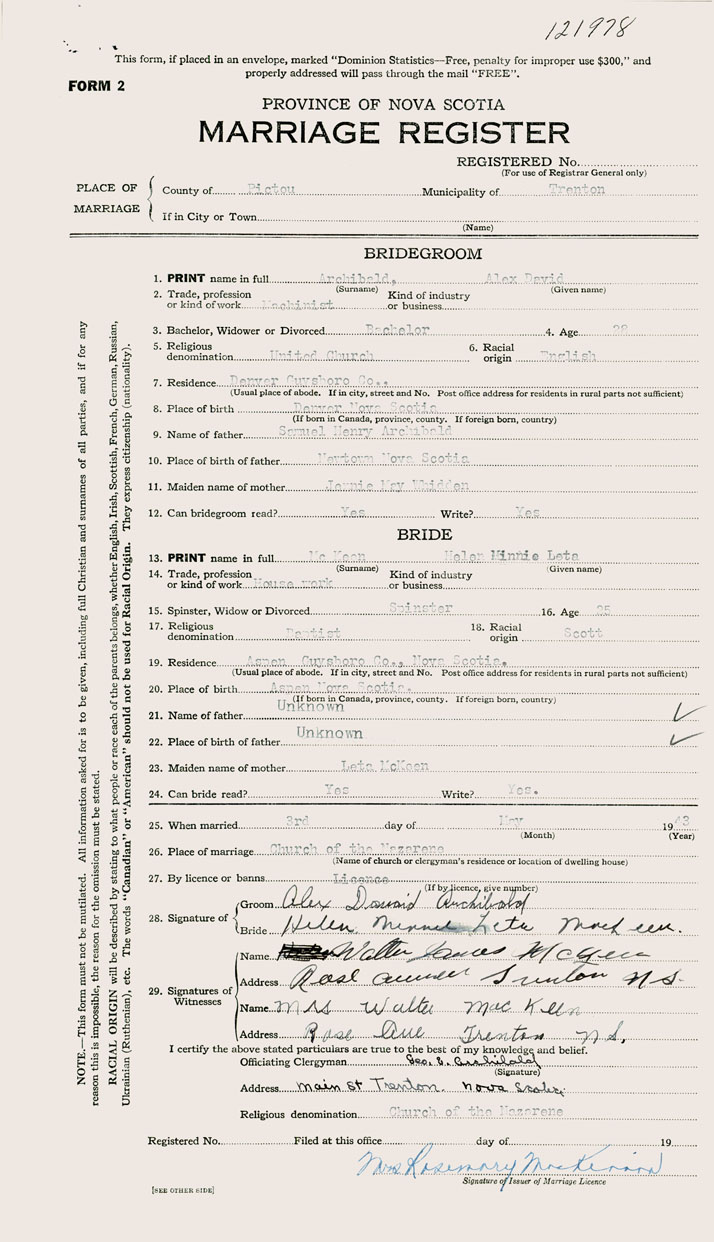 121978
This form, if placed in an envelope, marked "Dominion Statistics—Free, penalty for improper use $300," and
properly addressed will pass through the mail "FREE".
FORM 2
PROVINCE OF NOVA SCOTIA
MARRIAGE REGISTER
REGISTERED No.
(For use of Registrar General only)
PLACE OF MARRIAGE
County of Pictou Municipality of Trenton
If in City or Town
(Name)
BRIDEGROOM
1. PRINT name in full Archibald, Alex David
(Surname) (Given name)
2. Trade, profession or kind of work Machinist Kind of industry or business
3. Bachelor, Widower or Divorced Bachelor 4. Age 28
5. Religious denomination United Church 6. Racial origin English
7. Residence Denver Guysboro Co.,
(Usual place of abode. If in city, street and No. Post office address for residents in rural parts not sufficient)
8. Place of birth Denver Nova Scotia
(If born in Canada, province, county. If foreign born, country)
9. Name of father Samuel Henry Archibald
10. Place of birth of father Newtown Nova Scotia
11. Maiden name of mother Jennie May Whidden
12. Can bridegroom read? Yes Write? Yes
BRIDE
13. PRINT name in full Mc Keen Helen Minnie Leta
(Surname) (Given name)
14. Trade, profession or kind of work House work Kind of industry or business
15. Spinster, Widow or Divorced Spinster 16. Age 25
17. Religious denomination Baptist 18. Racial origin Scott
19. Residence Aspen Guysboro Co., Nova Scotia.
(Usual place of abode. If in city, street and No. Post office address for residents in rural parts not sufficient)
20. Place of birth Aspen Nova Scotia.
(If born in Canada, province, county. If foreign born, country)
21. Name of father Unknown
22. Place of birth of father Unknown
23. Maiden name of mother Leta McKeen
24. Can bride read? Yes Write? Yes.
25. When married 3rd day of May 1943
(Month) (Year)
26. Place of marriage Church of the Nazarene
(Name of church or clergyman's residence or location of dwelling house)
27. By licence or banns Licence
(If by licence, give number)
28. Signature of
Groom Alex David Archibald
Bride Helen Minnie Leta MacKeen.
29. Signatures of Witnesses
Name Walter James
Address Rose Trenton N S.
Name Mrs Walter MacKeen
Address Rose Ave Trenton N S.
I certify the above stated particulars are true to the best of my knowledge and belief.
Officiating Clergyman Geo. E. Archibald
(Signature)
Address Main St Trenton. Nova Scotia.
Religious denomination Church of the Nazarene
Registered No. Filed at this office day of 19
Mrs Rosemary MacKinnon
Signature of Issuer of Marriage Licence
[SEE OTHER SIDE]
NOTE.—This form must not be mutilated. All information asked for is to be given, including full Christian and surnames of all parties, and if for any
reason this is impossible, the reason for the omission must be stated.
RACIAL ORIGIN will be described by stating to what people or race each of the parents belongs, whether English, Irish, Scottish, French, German, Russian,
Ukrainian (Ruthenian), etc. The words "Canadian" or "American" should not be used for Racial Origin. They express citizenship (nationality).